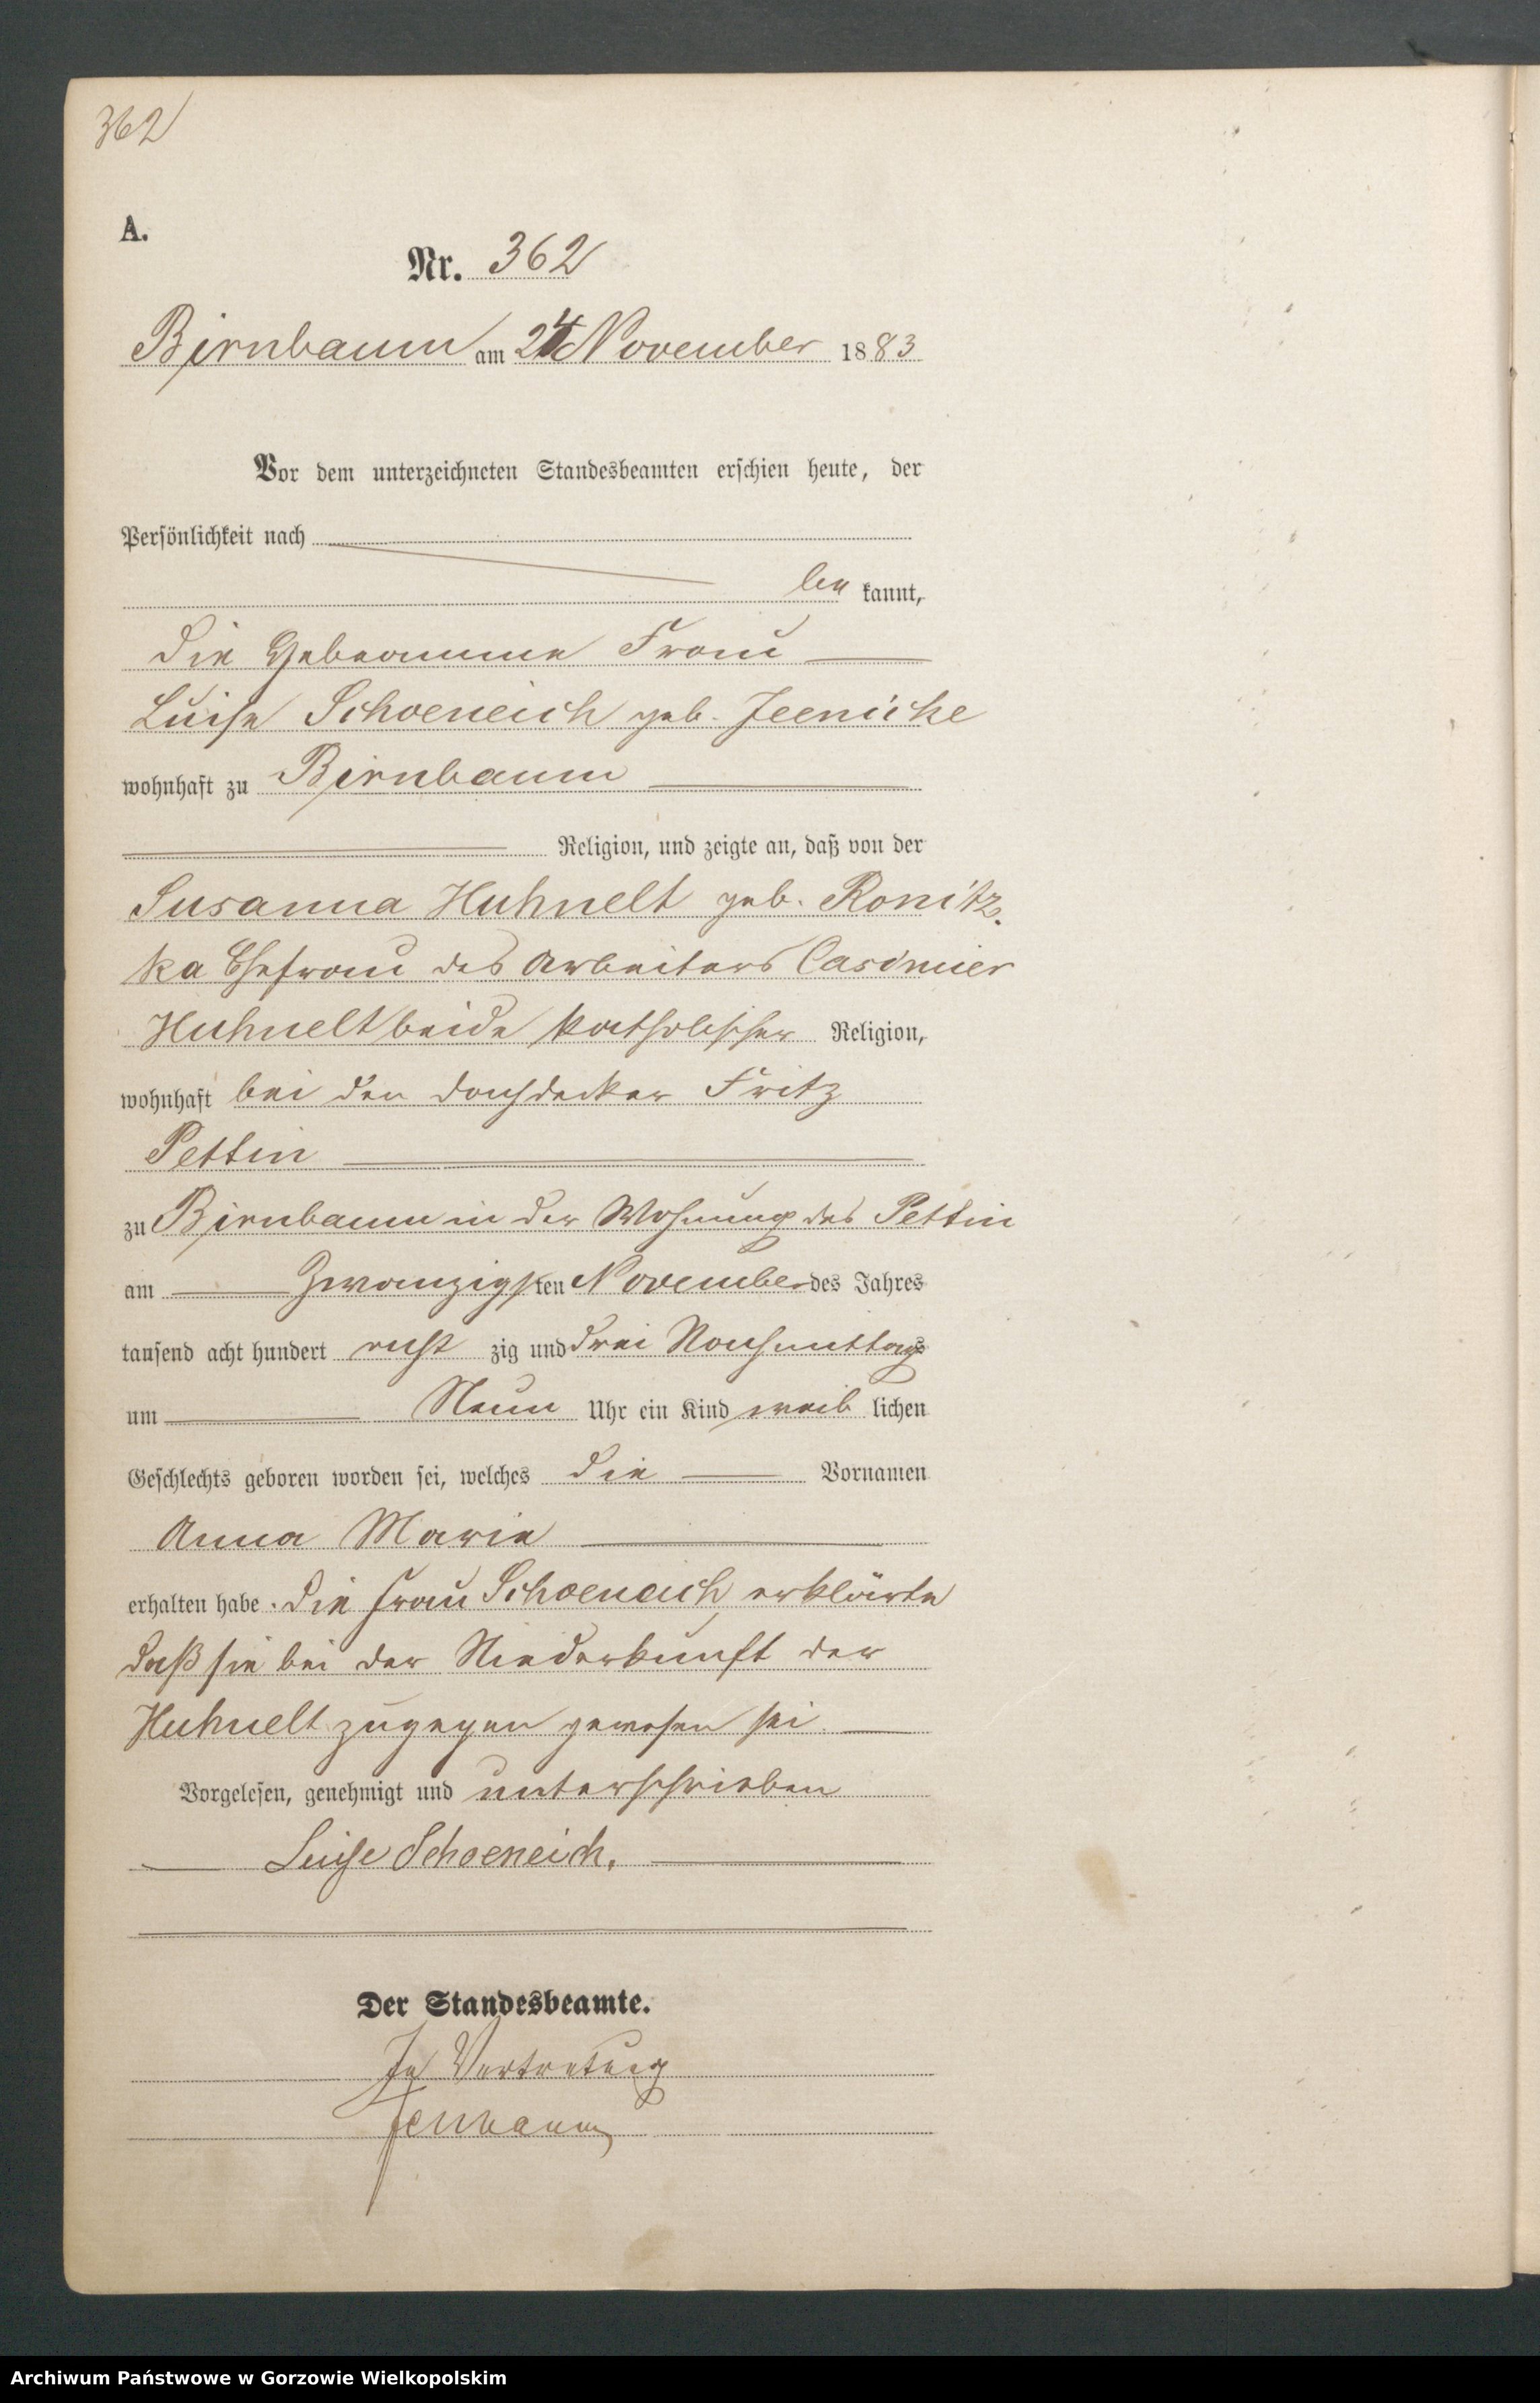 362
A.
Nr. 362
Birnbaum am 24 November 1883
Vor dem unterzeichneten Standesbeamten erschien heute, der
Persönlichkeit nach
be kannt,
die Hebeamme Frau
Luise Schoeneich geb. Jeenicke
wohnhaft zu Birnbaum
Religion, und zeigte an, daß von der
Susanna Huhnelt geb. Ronitz-
ka Ehefrau des Arbeiters Casimier
Huhnelt beide katholischer Religion,
wohnhaft bei den Dachdecker Fritz
Pettin
zu Birnbaum in der Wohnung des Pettin
am Zwanzigsten November des Jahres
tausend acht hundert acht zig und drei Nachmittags
um Neun Uhr ein Kind weib lichen
Geschlechts geboren worden sei, welches die Vornamen
Anna Marie
erhalten habe. Die Frau Schoeneich erklärte
daß sie bei der Niederkunft der
Huhnelt zugegen gewesen sei
Vorgelesen, genehmigt und unterschrieben
Luise Schoeneich.
Der Standesbeamte.
In Vertretung
Archiwum Państwowe w Gorzowie Wielkopolskim